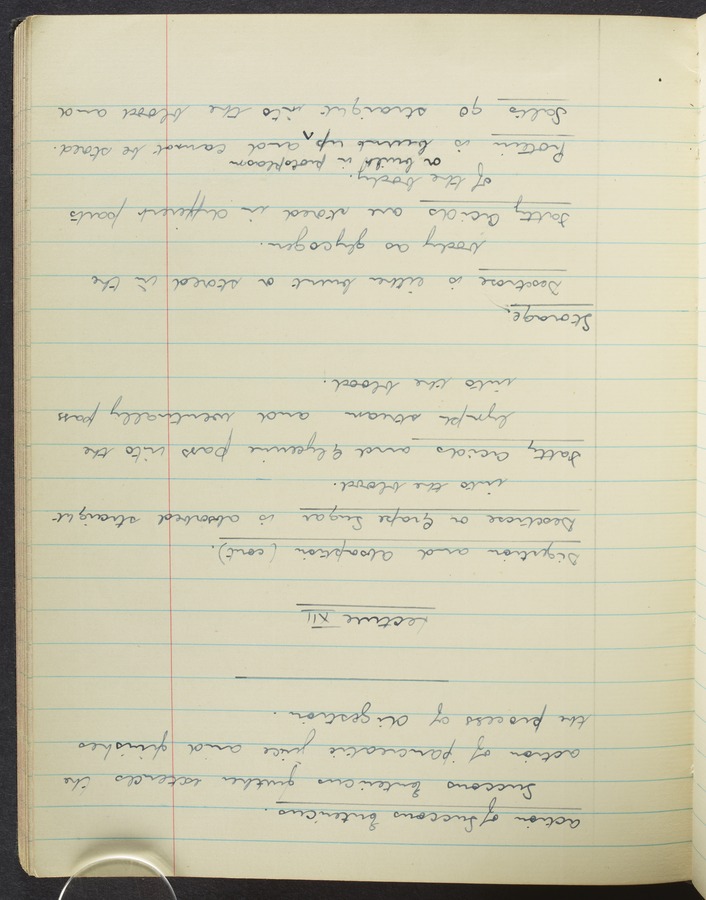 action of Succous Entericus.
Succous Entericus further extends the
action of pancreatic juice and finishes
the process of digestion.
Lecture XII
Digestion and absorption (cont).
Dextrose or Grape Sugar is absorbed straight
into the blood.
Fatty Acids and Glycerine pass into the
lymph stream and eventually pass
into the blood.
Storage.
Dextrose is either burnt or stored in the
body as glycogen.
Fatty Acids are stored in different parts
of the body.
or built in protoplasm
Protein is burnt up ^ and cannot be stored.
Salts go straight into the blood and